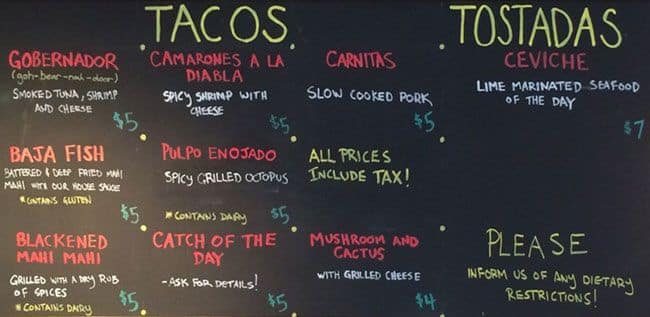 TACOS
GOBERNADOR
(goh-bear-nah-door)
SMOKED TUNA, SHRIMP
AND CHEESE
$5
CAMARONES A LA
DIABLA
SPICY SHRIMP WITH
CHEESE
$5
CARNITAS
SLOW COOKED PORK
$5
BAJA FISH
BATTERED & DEEP FRIED MAHI
MAHI WITH OUR HOUSE SAUCE
*CONTAINS GLUTEN
$5
PULPO ENOJADO
SPICY GRILLED OCTOPUS
*CONTAINS DAIRY
$5
ALL PRICES
INCLUDE TAX!
BLACKENED
MAHI MAHI
GRILLED WITH A DRY RUB
OF SPICES
*CONTAINS DAIRY
$5
CATCH OF THE
DAY
-ASK FOR DETAILS!
$5
MUSHROOM AND
CACTUS
WITH GRILLED CHEESE
$4
TOSTADAS
CEVICHE
LIME MARINATED SEAFOOD
OF THE DAY
$7
PLEASE
INFORM US OF ANY DIETARY
RESTRICTIONS!